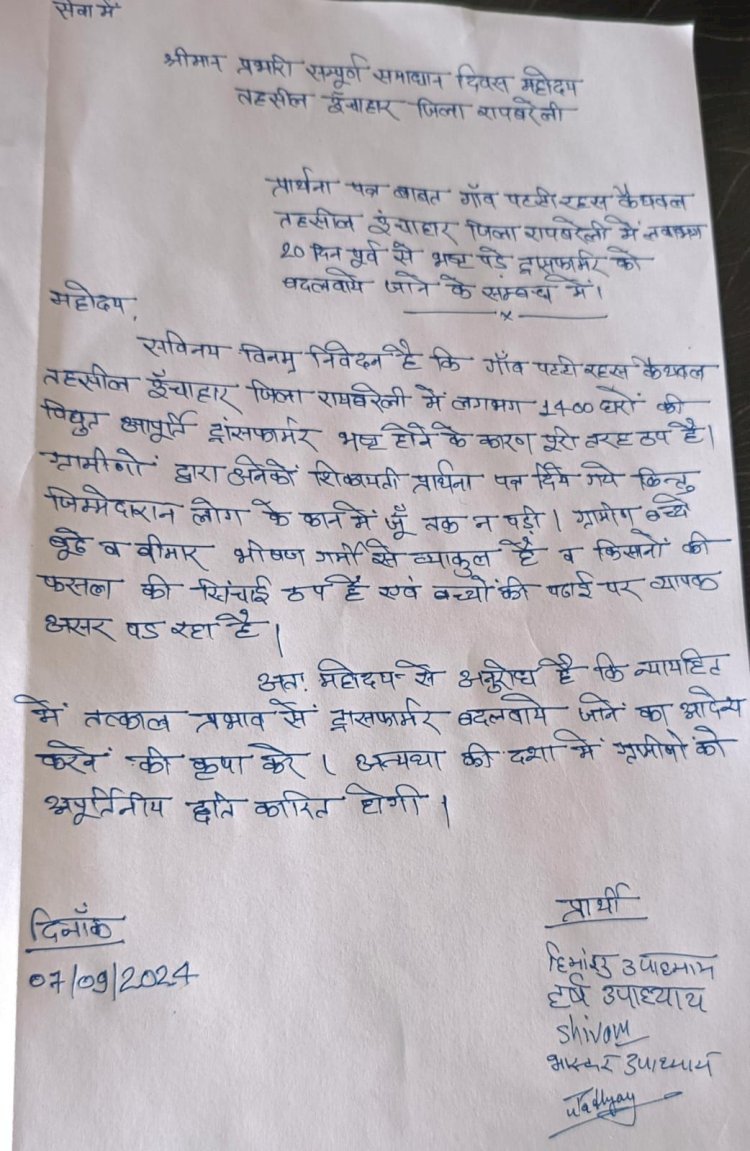 सेवा में
श्रीमान प्रभारी सम्पूर्ण समाधान दिवस महोदय
तहसील ऊँचाहार जिला रायबरेली
प्रार्थना पत्र बावत गाँव पट्टी रहस कैथवल
तहसील ऊँचाहार जिला रायबरेली में लगभग
20 दिन पूर्व से भ्रष्ट पड़े ट्रांसफार्मर को
बदलवाये जाने के सम्बन्ध में।
महोदय,
सविनय विनम्र निवेदन है कि गाँव पट्टी रहस कैथवल
तहसील ऊँचाहार जिला रायबरेली में लगभग 1400 घरों की
विद्युत आपूर्ति ट्रांसफार्मर भ्रष्ट होने के कारण पूरी तरह ठप है।
ग्रामीणों द्वारा अनेकों शिकायती प्रार्थना पत्र दिये गये किन्तु
जिम्मेदारान लोग के कान में जूँ तक न पड़ी। ग्रामीण बच्चे
बूढे व बीमार भीषण गर्मी से व्याकुल है व किसानों की
फसल की सिंचाई ठप है एवं बच्चों की पढाई पर व्यापक
असर पड रहा है।
अतः महोदय से अनुरोध है कि न्यायहित
में तत्काल प्रभाव से ट्रांसफार्मर बदलवाये जाने का आदेश
करने की कृपा करे। अन्यथा की दशा में ग्रामीणों को
अपूर्तिनीय क्षति कारित होगी।
दिनाँक
07/09/2024
प्रार्थी
हिमांशु उपाध्याय
हर्ष उपाध्याय
Shivam
भास्कर उपाध्याय